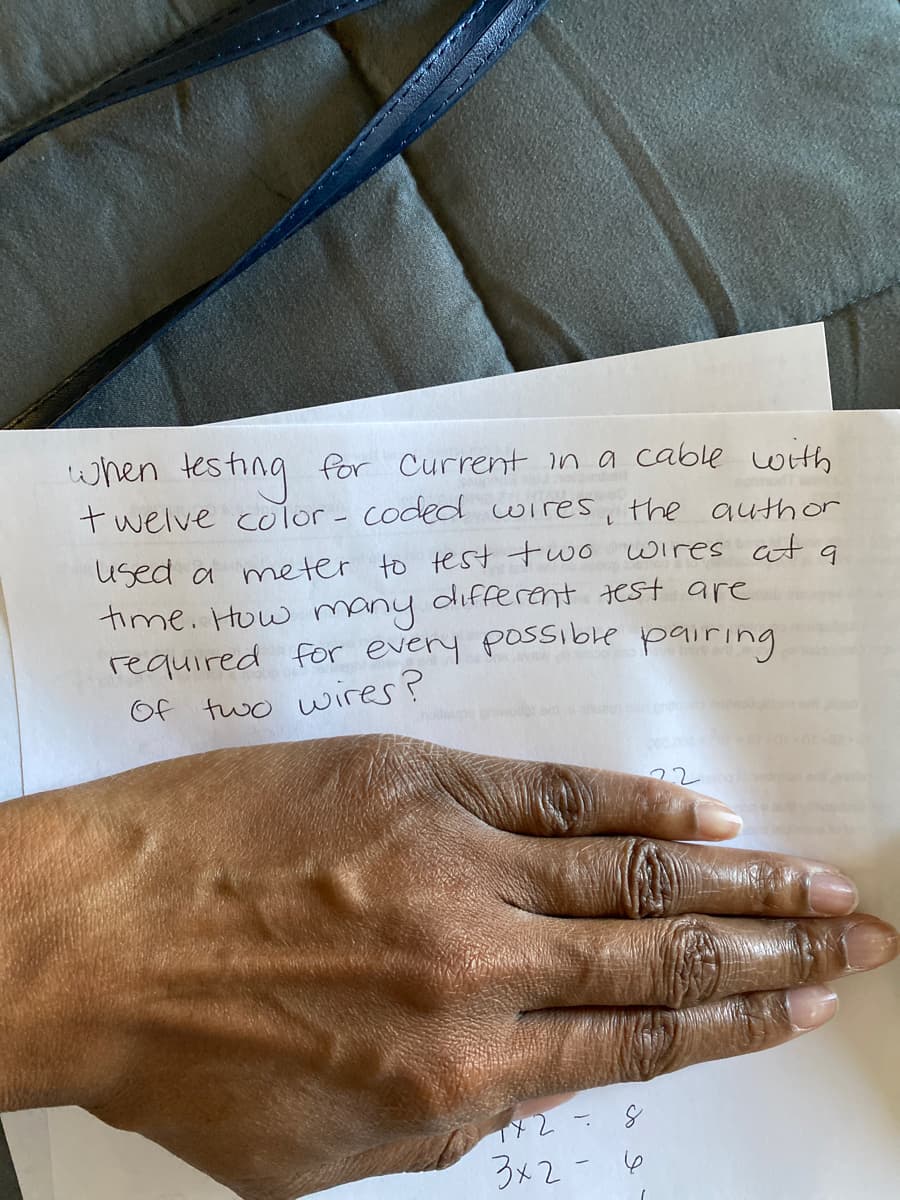 when testing for current in a cable with
twelve color-coded wires, the author
used a meter to test two wires at a
time. How many different test are
required for every possible pairing
of two wires?
22
x2 - 8
3x2 - 6